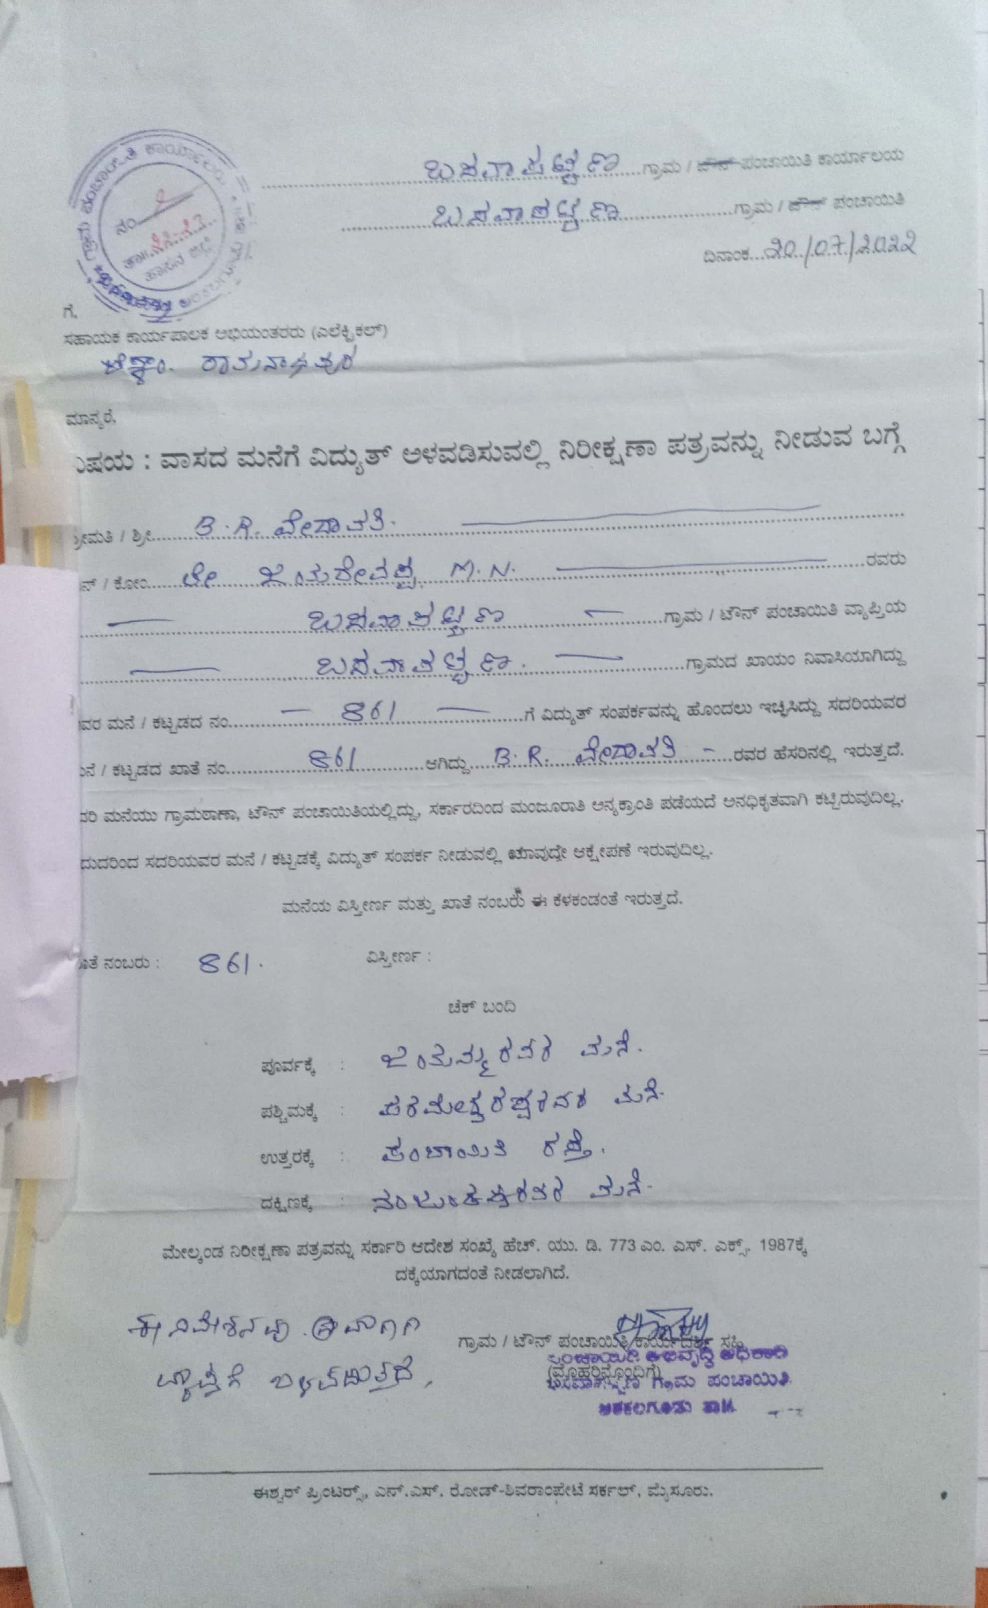 ಗ್ರಾಮ ಪಂಚಾಯಿತಿ ಕಾರ್ಯಾಲಯ
ನಂ
ತಾ:
ಹಾಸನ ಜಿಲ್ಲೆ
ಬಸವಾಪಟ್ಟಣ ಗ್ರಾಮ / ಟೌನ್ ಪಂಚಾಯಿತಿ ಕಾರ್ಯಾಲಯ
ಬಸವಾಪಟ್ಟಣ ಗ್ರಾಮ / ಟೌನ್ ಪಂಚಾಯಿತಿ
ದಿನಾಂಕ...20/07/2022
ಗೆ,
ಸಹಾಯಕ ಕಾರ್ಯಪಾಲಕ ಅಭಿಯಂತರರು (ಎಲೆಕ್ಟ್ರಿಕಲ್)
ರಾಮನಾಥಪುರ
ಮಾನ್ಯರೆ,
ವಿಷಯ : ವಾಸದ ಮನೆಗೆ ವಿದ್ಯುತ್ ಅಳವಡಿಸುವಲ್ಲಿ ನಿರೀಕ್ಷಣಾ ಪತ್ರವನ್ನು ನೀಡುವ ಬಗ್ಗೆ
ಶ್ರೀಮತಿ / ಶ್ರೀ...... B.R. ವೇದಾವತಿ.
ಬಿನ್ / ಕೋಂ.... ಲೇ ಜಯದೇವಪ್ಪ M.N. ರವರು
ಬಸವಾಪಟ್ಟಣ ಗ್ರಾಮ / ಟೌನ್ ಪಂಚಾಯಿತಿ ವ್ಯಾಪ್ತಿಯ
ಬಸವಾಪಟ್ಟಣ. ಗ್ರಾಮದ ಖಾಯಂ ನಿವಾಸಿಯಾಗಿದ್ದು
ಇವರ ಮನೆ / ಕಟ್ಟಡದ ನಂ. 861 ಗೆ ವಿದ್ಯುತ್ ಸಂಪರ್ಕವನ್ನು ಹೊಂದಲು ಇಚ್ಛಿಸಿದ್ದು ಸದರಿಯವರ
ಮನೆ / ಕಟ್ಟಡದ ಖಾತೆ ನಂ. 861 ಆಗಿದ್ದು. B.R. ವೇದಾವತಿ - ರವರ ಹೆಸರಿನಲ್ಲಿ ಇರುತ್ತದೆ.
ಸದರಿ ಮನೆಯು ಗ್ರಾಮಠಾಣಾ, ಟೌನ್ ಪಂಚಾಯಿತಿಯಲ್ಲಿದ್ದು, ಸರ್ಕಾರದಿಂದ ಮಂಜೂರಾತಿ ಅನ್ಯಕ್ರಾಂತಿ ಪಡೆಯದೆ ಅನಧಿಕೃತವಾಗಿ ಕಟ್ಟಿರುವುದಿಲ್ಲ.
ಆದುದರಿಂದ ಸದರಿಯವರ ಮನೆ / ಕಟ್ಟಡಕ್ಕೆ ವಿದ್ಯುತ್ ಸಂಪರ್ಕ ನೀಡುವಲ್ಲಿ ಯಾವುದೇ ಆಕ್ಷೇಪಣೆ ಇರುವುದಿಲ್ಲ.
ಮನೆಯ ವಿಸ್ತೀರ್ಣ ಮತ್ತು ಖಾತೆ ನಂಬರು ಈ ಕೆಳಕಂಡಂತೆ ಇರುತ್ತದೆ.
ಖಾತೆ ನಂಬರು : 861. ವಿಸ್ತೀರ್ಣ :
ಚೆಕ್ ಬಂದಿ
ಪೂರ್ವಕ್ಕೆ : ಜಯಮ್ಮರವರ ಮನೆ.
ಪಶ್ಚಿಮಕ್ಕೆ : ಪರಮೇಶ್ವರಪ್ಪರವರ ಮನೆ.
ಉತ್ತರಕ್ಕೆ : ಪಂಚಾಯಿತಿ ರಸ್ತೆ.
ದಕ್ಷಿಣಕ್ಕೆ : ನಂಜುಂಡಪ್ಪರವರ ಮನೆ.
ಮೇಲ್ಕಂಡ ನಿರೀಕ್ಷಣಾ ಪತ್ರವನ್ನು ಸರ್ಕಾರಿ ಆದೇಶ ಸಂಖ್ಯೆ ಹೆಚ್. ಯು. ಡಿ. 773 ಎಂ. ಎಸ್. ಎಕ್ಸ್, 1987ಕ್ಕೆ
ದಕ್ಕೆಯಾಗದಂತೆ ನೀಡಲಾಗಿದೆ.
ಈ ನಿವೇಶನವು
ವ್ಯಾಪ್ತಿಗೆ ಒಳಪಡುತ್ತದೆ.
ಗ್ರಾಮ / ಟೌನ್ ಪಂಚಾಯಿತಿ ಕಾರ್ಯದರ್ಶಿ ಸಹಿ
(ಮೊಹರಿನ್ನೊಂದಿಗೆ)
ಪಂಚಾಯಿತಿ ಅಭಿವೃದ್ಧಿ ಅಧಿಕಾರಿ
ಬಸವಾಪಟ್ಟಣ ಗ್ರಾಮ ಪಂಚಾಯಿತಿ
ಅರಕಲಗೂಡು ತಾ||
ಈಶ್ವರ್ ಪ್ರಿಂಟರ್ಸ್, ಎನ್.ಎಸ್. ರೋಡ್-ಶಿವರಾಂಪೇಟೆ ಸರ್ಕಲ್, ಮೈಸೂರು.